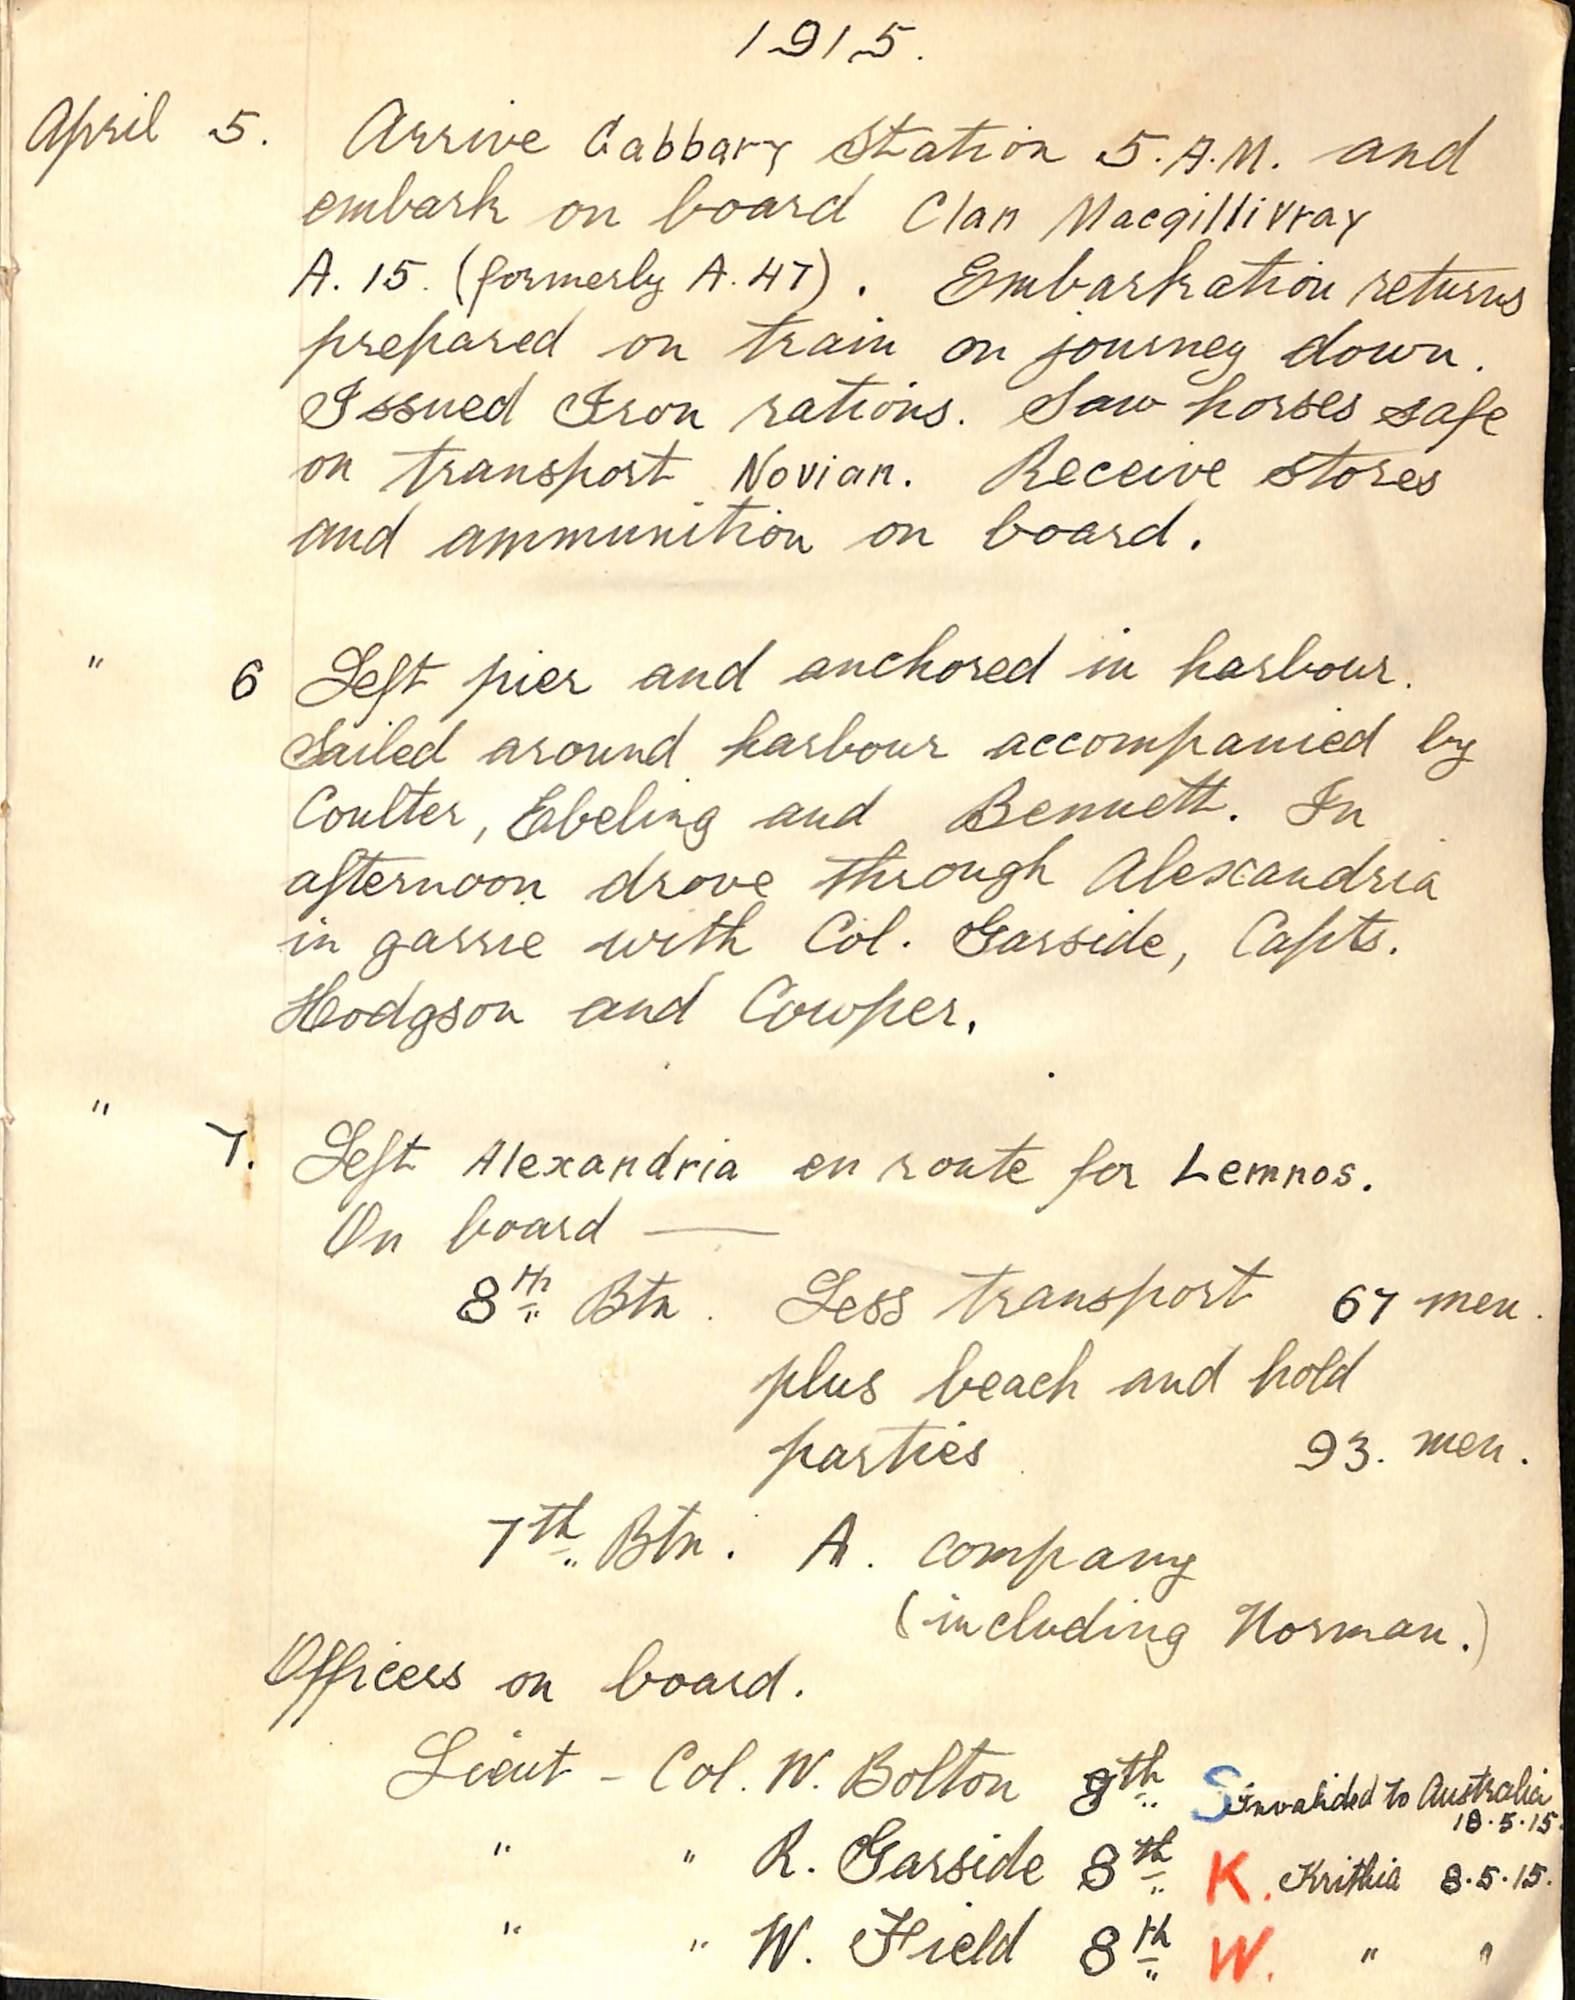 1915.
April 5. Arrive Gabbary Station 5.A.M. and
embark on board Clan Macgillivray
A.15. (formerly A.47). Embarkation returns
prepared on train on journey down.
Issued Iron rations. Saw horses safe
on transport Novian. Receive stores
and ammunition on board.
" 6 Left pier and anchored in harbour.
Sailed around harbour accompanied by
Coulter, Ebeling and Bennett. In
afternoon drove through Alexandria
in garrie with Col. Garside, Capts.
Hodgson and Cowper.
" 7. Left Alexandria en route for Lemnos.
On board —
8th Btn. Less transport 67 men.
plus beach and hold
parties 93. men.
7th Btn. A. company
(including Norman.)
Officers on board.
Lieut - Col. W. Bolton 8th S Invalided to Australia
18.5.15.
" " R. Garside 8th K. Krithia 8.5.15.
" " W. Field 8th W. " "